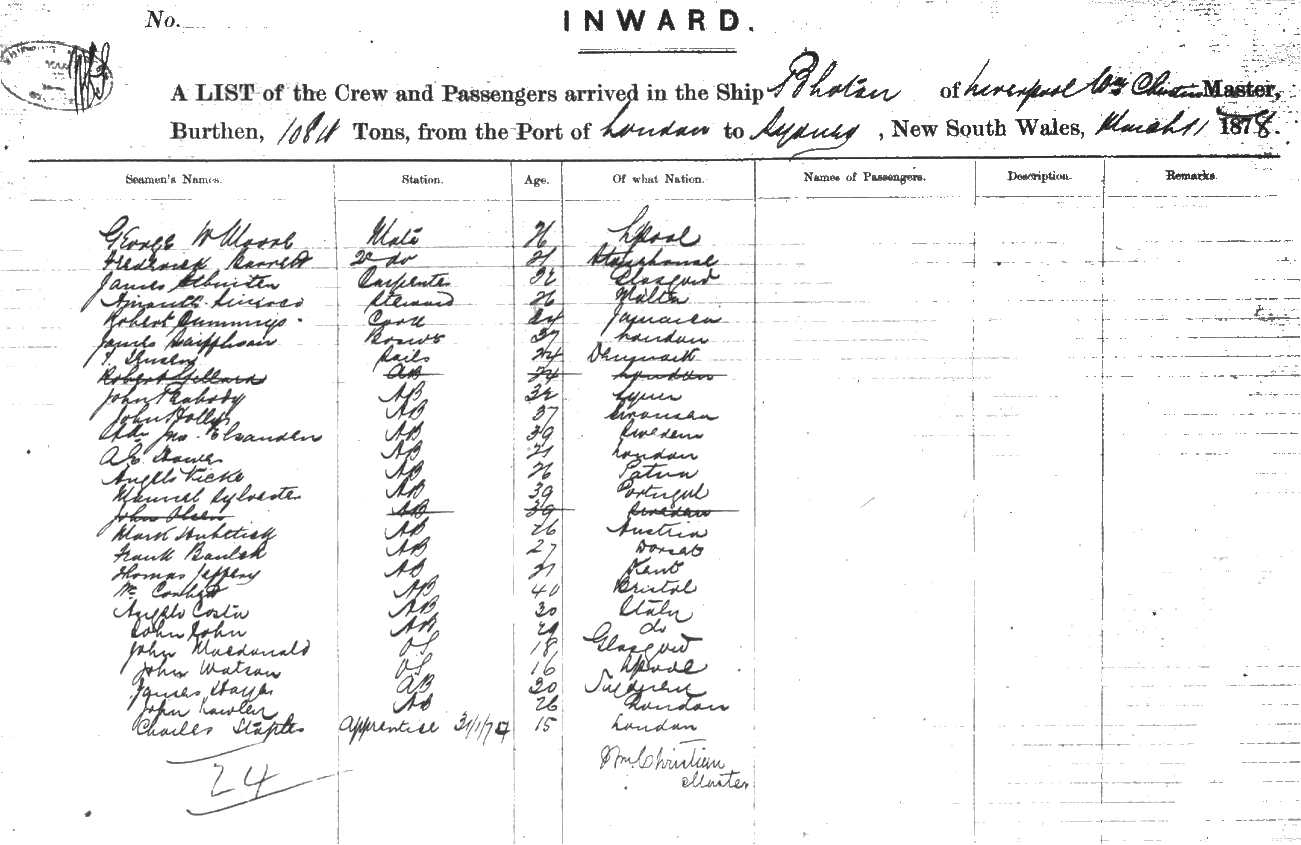 No.
INWARD.
A LIST of the Crew and Passengers arrived in the Ship Bhotan of Liverpool Wm Christian Master,
Burthen, Tons, from the Port of London to Sydney, New South Wales, March 11 1878.
Seamen's Names. Station. Age. Of what Nation. Names of Passengers. Description. Remarks.
George W Moore Mate 26 Lpool
Frederick Barrett 2d do 21
James Carpenter 32 Glasgow
Steward 26 Malta
Robert Cummings Cook 24 Jamaica
James Bosun 37 London
Sails 24 Denmark
Robert AB 24 London
John Peabody AB 32 Lynn
John Holly AB 37 Swansea
Jno. AB 39 Sweden
A.E. Hawes AB 21 London
Angelo AB 26
Manuel Sylvester AB 39 Portugal
John Olsen AB 39 Sweden
Mark AB 26 Austria
Frank AB 27 Dorset
Thomas Jeffery AB 21 Kent
Wm AB 40 Bristol
Angelo Costa AB 30 Italy
John John AB 29 do
John Macdonald OS 18 Glasgow
John Watson OS 16 Lpool
James Hayes AB 30
John AB 26 London
Charles Staples Apprentice 15 London
24
Wm Christian
Master